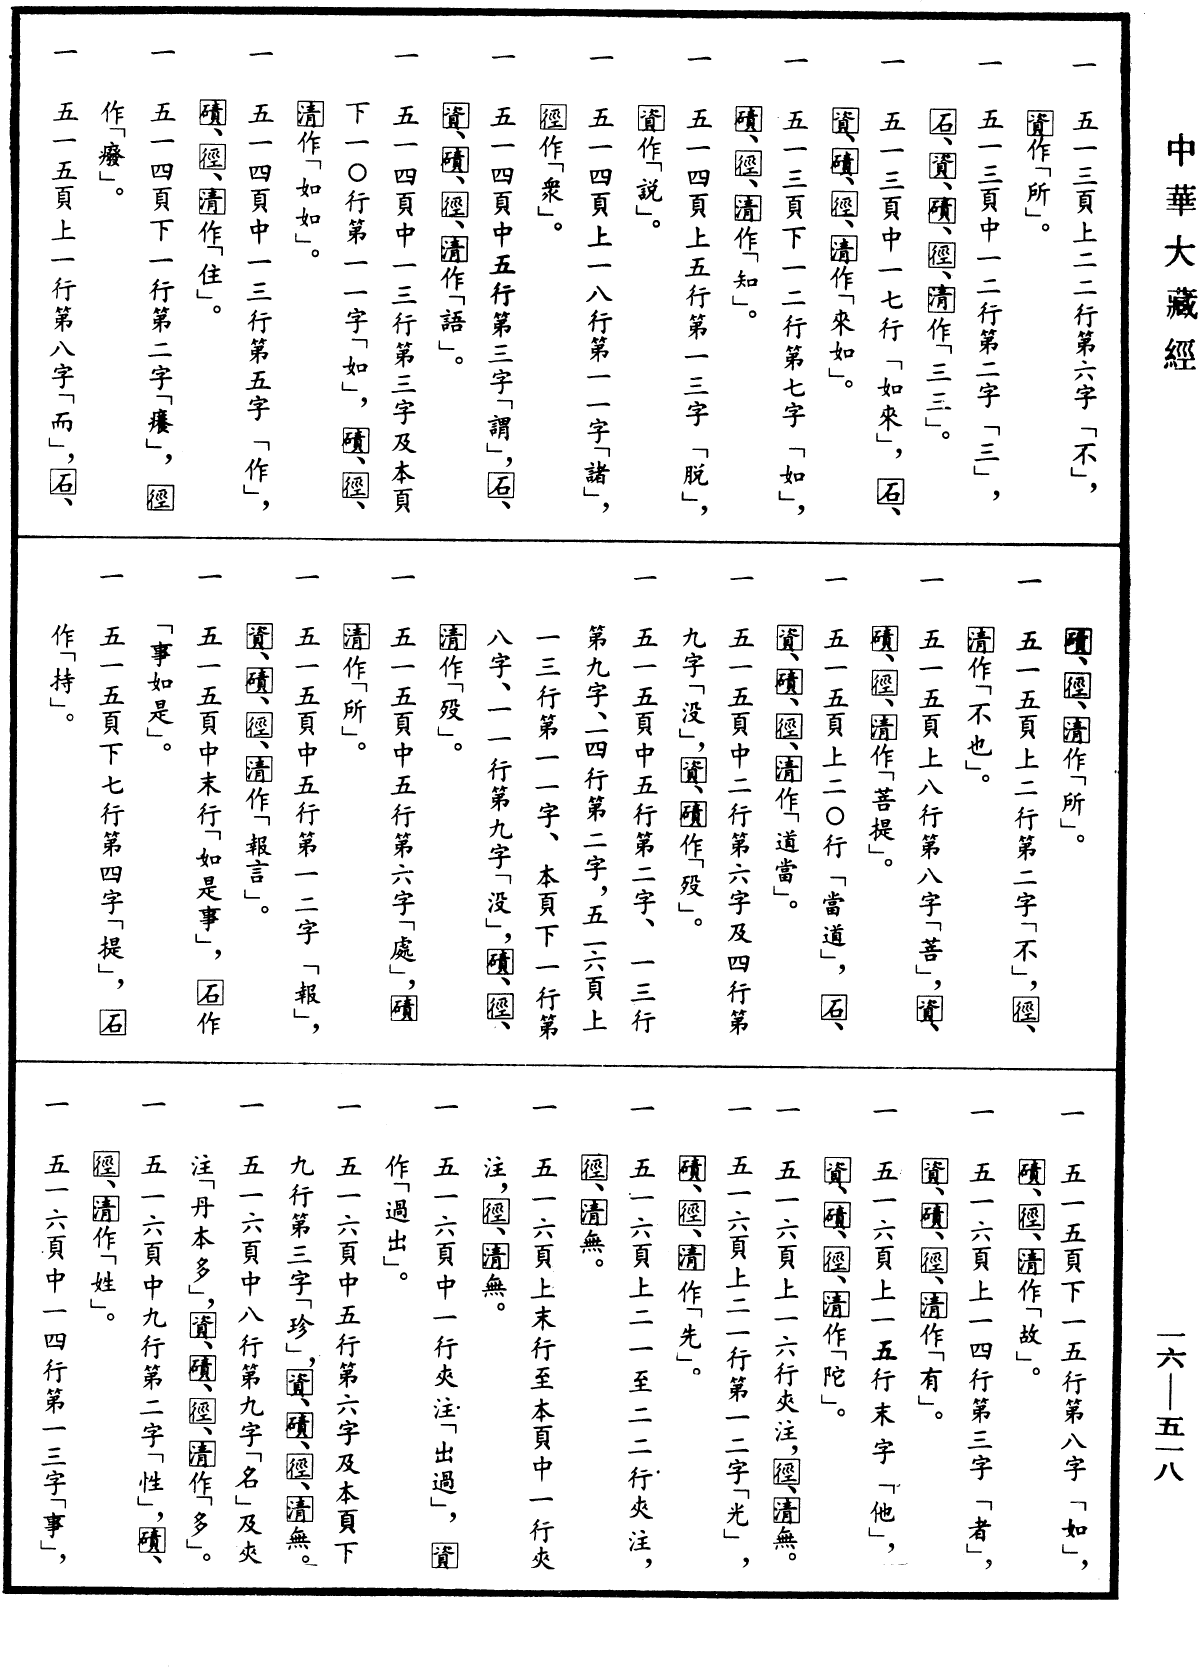 中華大藏經
一六—五一八
一 五一三頁上二二行第六字「不」，
資作「所」。
一 五一三頁中一二行第二字「三」，
石、資、磧、徑、清作「三三」。
一 五一三頁中一七行「如來」，石、
資、磧、徑、清作「來如」。
一 五一三頁下一二行第七字「如」，
磧、徑、清作「知」。
一 五一四頁上五行第一三字「脱」，
資作「説」。
一 五一四頁上一八行第一一字「諸」，
徑作「衆」。
一 五一四頁中五行第三字「謂」，石、
資、磧、徑、清作「語」。
一 五一四頁中一三行第三字及本頁
下一〇行第一一字「如」，磧、徑、
清作「如如」。
一 五一四頁中一三行第五字「作」，
磧、徑、清作「住」。
一 五一四頁下一行第二字「癢」，徑
作「癈」。
一 五一五頁上一行第八字「而」，石、
磧、徑、清作「所」。
一 五一五頁上二行第二字「不」，徑、
清作「不也」。
一 五一五頁上八行第八字「菩」，資、
磧、徑、清作「菩提」。
一 五一五頁上二〇行「當道」，石、
資、磧、徑、清作「道當」。
一 五一五頁中二行第六字及四行第
九字「没」，資、磧作「殁」。
一 五一五頁中五行第二字、一三行
第九字、一四行第二字，五一六頁上
一三行第一一字、本頁下一行第
八字、一一行第九字「没」，磧、徑、
清作「殁」。
一 五一五頁中五行第六字「處」，磧
清作「所」。
一 五一五頁中五行第一二字「報」，
資、磧、徑、清作「報言」。
一 五一五頁中末行「如是事」，石作
「事如是」。
一 五一五頁下七行第四字「提」，石
作「持」。
一 五一五頁下一五行第八字「如」，
磧、徑、清作「故」。
一 五一六頁上一四行第三字「者」，
資、磧、徑、清作「有」。
一 五一六頁上一五行末字「他」，
資、磧、徑、清作「陀」。
一 五一六頁上一六行夾注，徑、清無。
一 五一六頁上二一行第一二字「光」，
磧、徑、清作「先」。
一 五一六頁上二一至二二行夾注，
徑、清無。
一 五一六頁上末行至本頁中一行夾
注，徑、清無。
一 五一六頁中一行夾注「出過」，資
作「過出」。
一 五一六頁中五行第六字及本頁下
九行第三字「珍」，資、磧、徑、清無。
一 五一六頁中八行第九字「名」及夾
注「丹本多」，資、磧、徑、清作「多」。
一 五一六頁中九行第二字「性」，磧、
徑、清作「姓」。
一 五一六頁中一四行第一三字「事」，